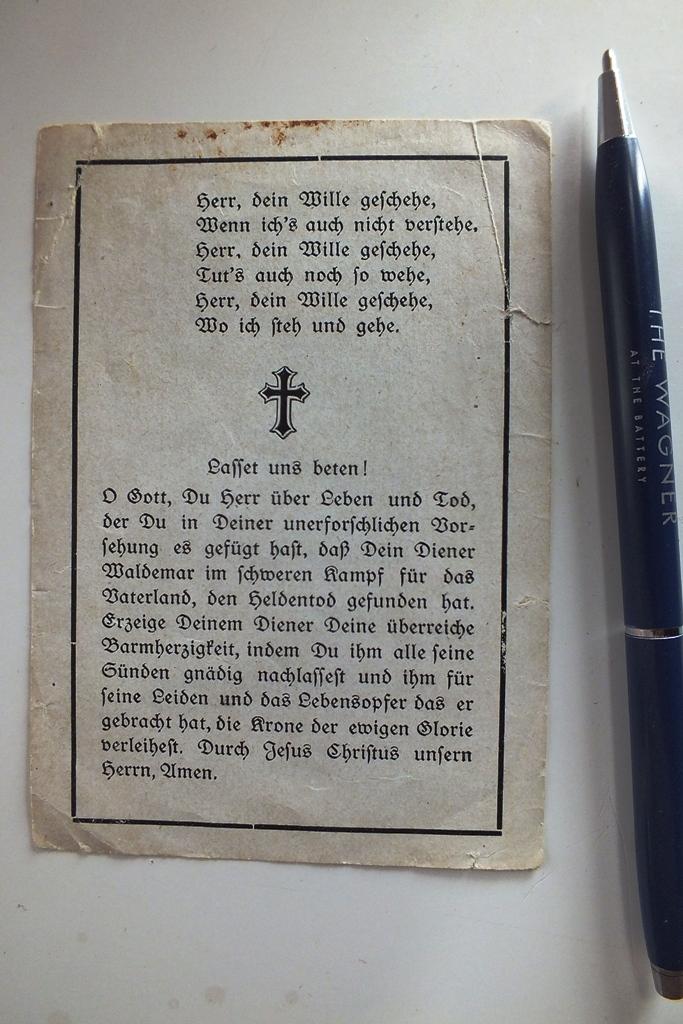 Herr, dein Wille geschehe,
Wenn ich's auch nicht verstehe.
Herr, dein Wille geschehe,
Tut's auch noch so wehe,
Herr, dein Wille geschehe,
Wo ich steh und gehe.
Lasset uns beten!
O Gott, Du Herr über Leben und Tod,
der Du in Deiner unerforschlichen Vor-
sehung es gefügt hast, daß Dein Diener
Waldemar im schweren Kampf für das
Vaterland, den Heldentod gefunden hat.
Erzeige Deinem Diener Deine überreiche
Barmherzigkeit, indem Du ihm alle seine
Sünden gnädig nachlassest und ihm für
seine Leiden und das Lebensopfer das er
gebracht hat, die Krone der ewigen Glorie
verleihest. Durch Jesus Christus unsern
Herrn, Amen.
THE WAGNER
AT THE BATTERY